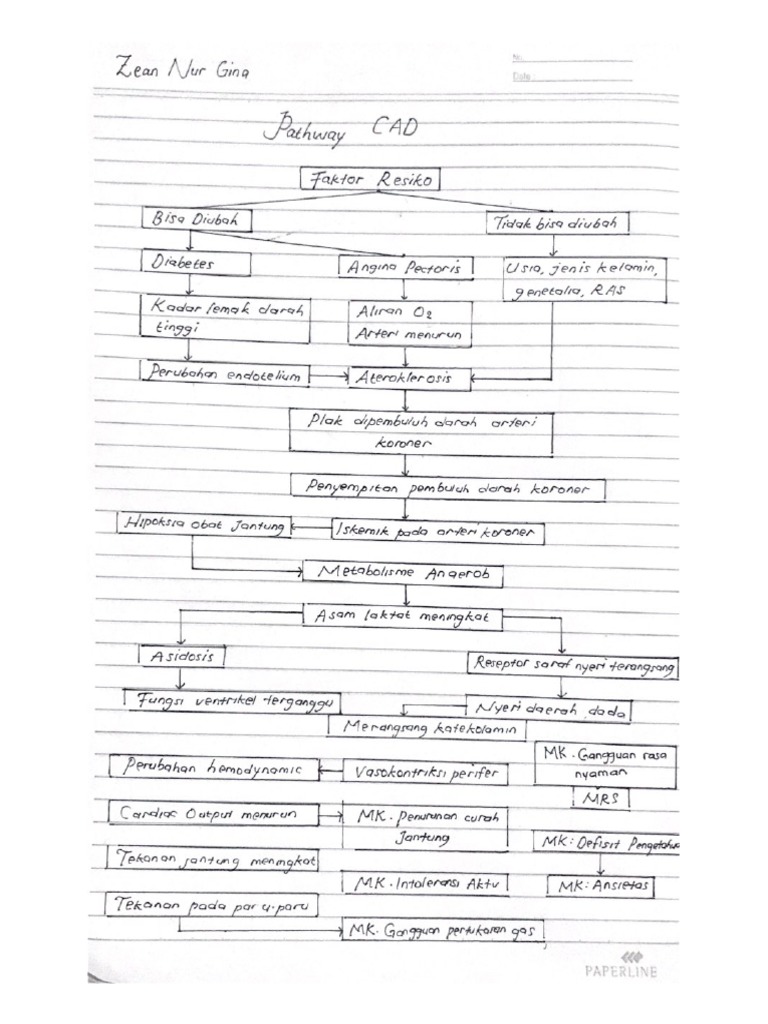 Zean Nur Gina
No.
Date :
Pathway CAD
Faktor Resiko
Bisa Diubah
Tidak bisa diubah
Diabetes
Angina Pectoris
Usia, jenis kelamin,
genetalia, RAS
Kadar lemak darah
tinggi
Aliran O2
Arteri menurun
Perubahan endotelium
Ateroklerosis
Plak dipembuluh darah arteri
koroner
Penyempitan pembuluh darah koroner
Hipoksia obat Jantung
Iskemik pada arteri koroner
Metabolisme Anaerob
Asam laktat meningkat
Asidosis
Reseptor saraf nyeri terangsang
Fungsi ventrikel terganggu
Nyeri daerah dada
Merangsang katekolamin
MK. Gangguan rasa
nyaman
Perubahan hemodynamic
Vasokontriksi perifer
MRS
Cardiac Output menurun
MK. Penurunan curah
Jantung
MK: Defisit Pengetahua
Tekanan jantung meningkat
MK. Intoleransi Aktv
MK: Ansietas
Tekanan pada paru-paru
MK. Gangguan pertukaran gas
PAPERLINE